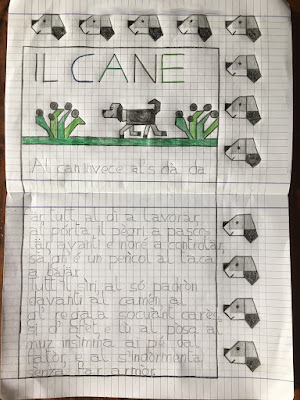 IL CANE
Al can invece al's dà da
ar tutt al dì a lavorar
al pòrta il pègri a pascc
lar avanti e indré a controlar
s'a gh'è un pericol al taca
a bajar
Tutt il siri al só padròn
davanti al camén al
gh' regala socuant carès
si d' afet, e lü al pòsa al
muz insimma ai pé dal
fator e al s'indormenta
senza far armor